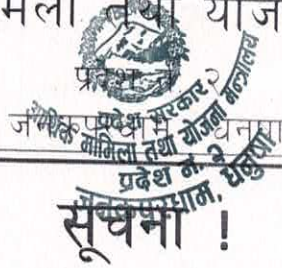 मिला तथा योज
प्रदेश नं. २
जनकपुरधाम, धनुषा
प्रदेश सरकार
आर्थिक मामिला तथा योजना मन्त्रालय
प्रदेश नं. २
जनकपुरधाम, धनुषा
सूचना !